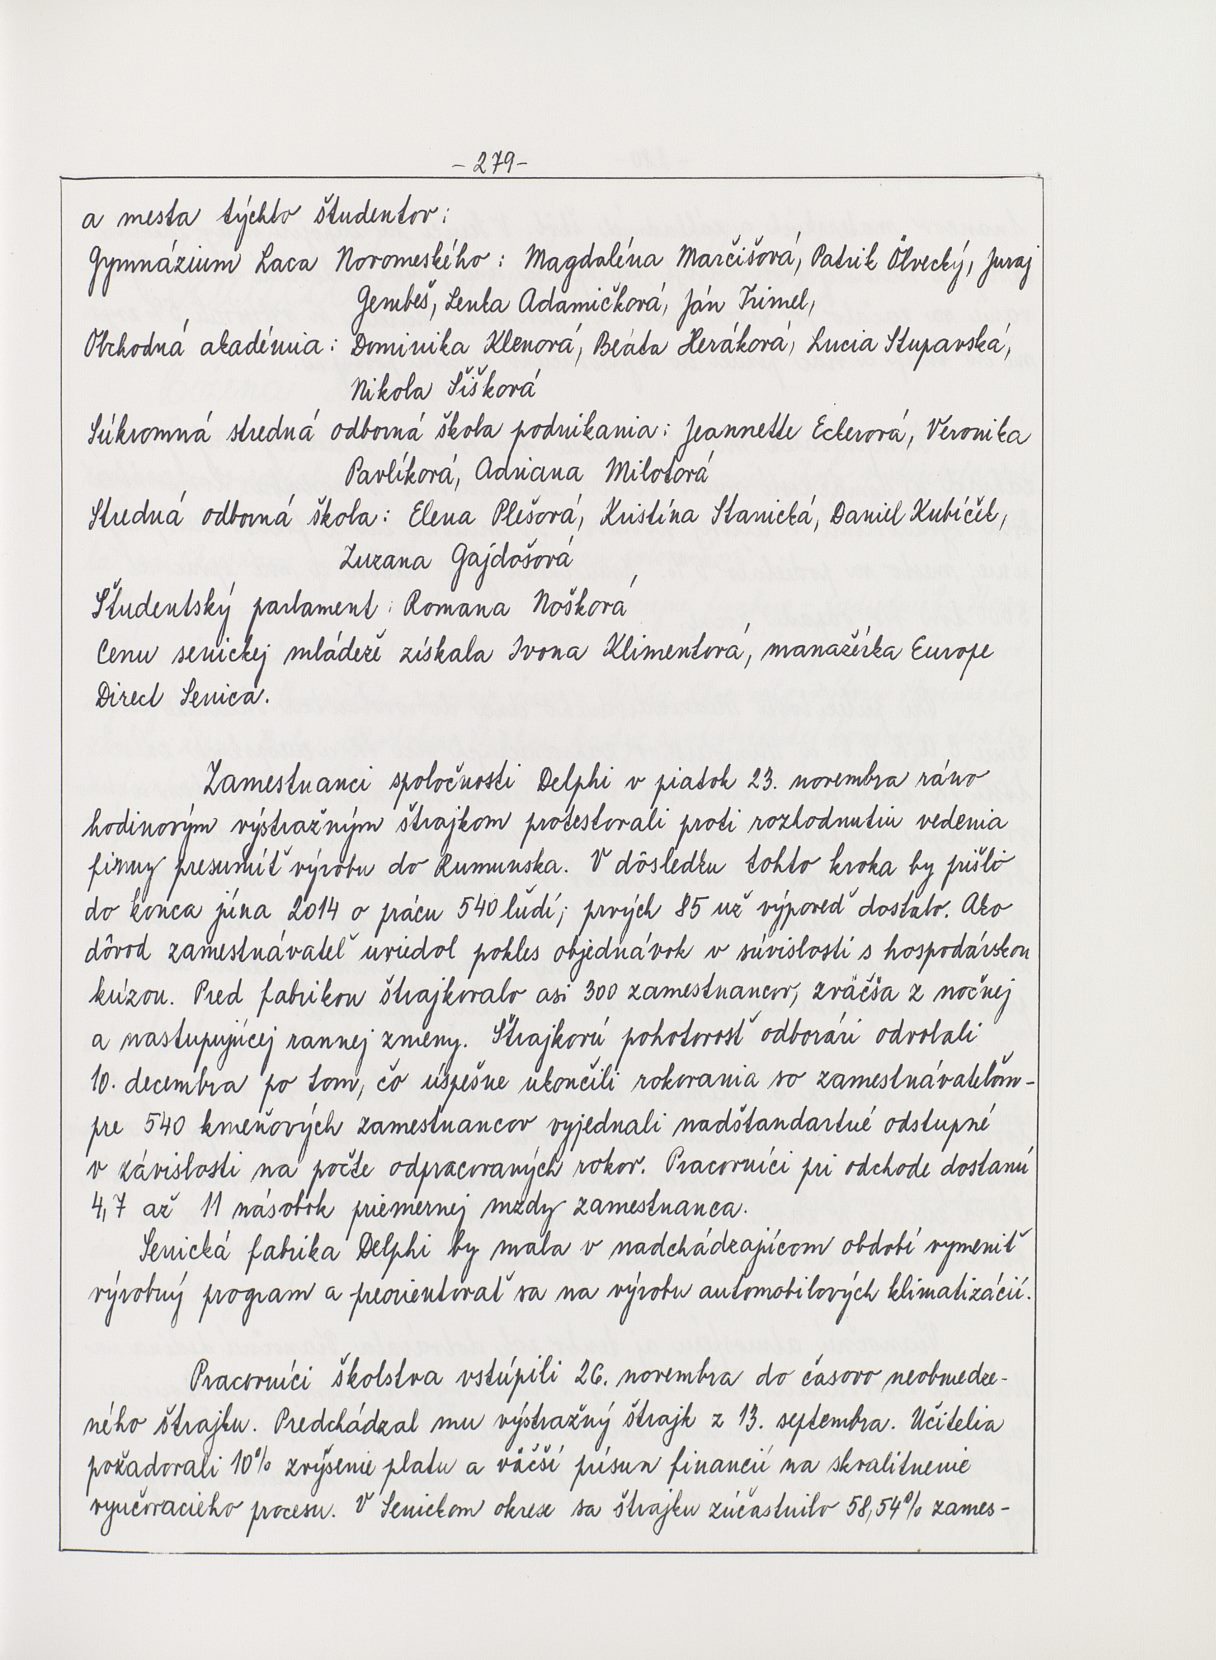 - 279 -
a mesta týchto študentov:
Gymnázium Laca Novomeského: Magdaléna Marčišová, Patrik Ölvecký, Juraj
Gembeš, Lenka Adamičková, Ján Trimel,
Obchodná akadémia: Dominika Klenová, Beáta Heráková, Lucia Stupavská,
Nikola Šišková
Súkromná stredná odborná škola podnikania: Jeannette Eckerová, Veronika
Pavlíková, Adriana Milotová
Stredná odborná škola: Elena Plešová, Kristína Stanická, Daniel Kubíček,
Zuzana Gajdošová
Študentský parlament: Romana Nošková
Cenu senickej mládeže získala Ivona Klimentová, manažérka Europe
Direct Senica.
Zamestnanci spoločnosti Delphi v piatok 23. novembra ráno
hodinovým výstražným štrajkom protestovali proti rozhodnutiu vedenia
firmy presunúť výrobu do Rumunska. V dôsledku tohto kroka by prišlo
do konca júna 2014 o prácu 540 ľudí; prvých 85 už výpoveď dostalo. Ako
dôvod zamestnávateľ uviedol pokles objednávok v súvislosti s hospodárskou
krízou. Pred fabrikou štrajkovalo asi 300 zamestnancov, zväčša z nočnej
a nastupujúcej rannej zmeny. Štrajkovú pohotovosť odborári odvolali
10. decembra po tom, čo úspešne ukončili rokovania so zamestnávateľom -
pre 540 kmeňových zamestnancov vyjednali nadštandartné odstupné
v závislosti na počte odpracovaných rokov. Pracovníci pri odchode dostanú
4,7 až 11 násobok priemernej mzdy zamestnanca.
Senická fabrika Delphi by mala v nadchádzajúcom období vymeniť
výrobný program a preorientovať sa na výrobu automobilových klimatizácií.
Pracovníci školstva vstúpili 26. novembra do časovo neobmedze-
ného štrajku. Predchádzal mu výstražný štrajk z 13. septembra. Učitelia
požadovali 10% zvýšenie platu a väčší prísun financií na skvalitnenie
vyučovacieho procesu. V Senickom okrese sa štrajku zúčastnilo 58,54% zames-